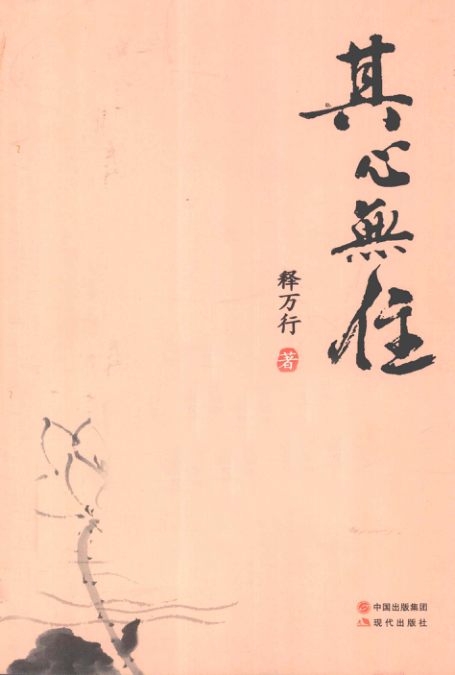 其心無住
释万行
著
中国出版集团
现代出版社